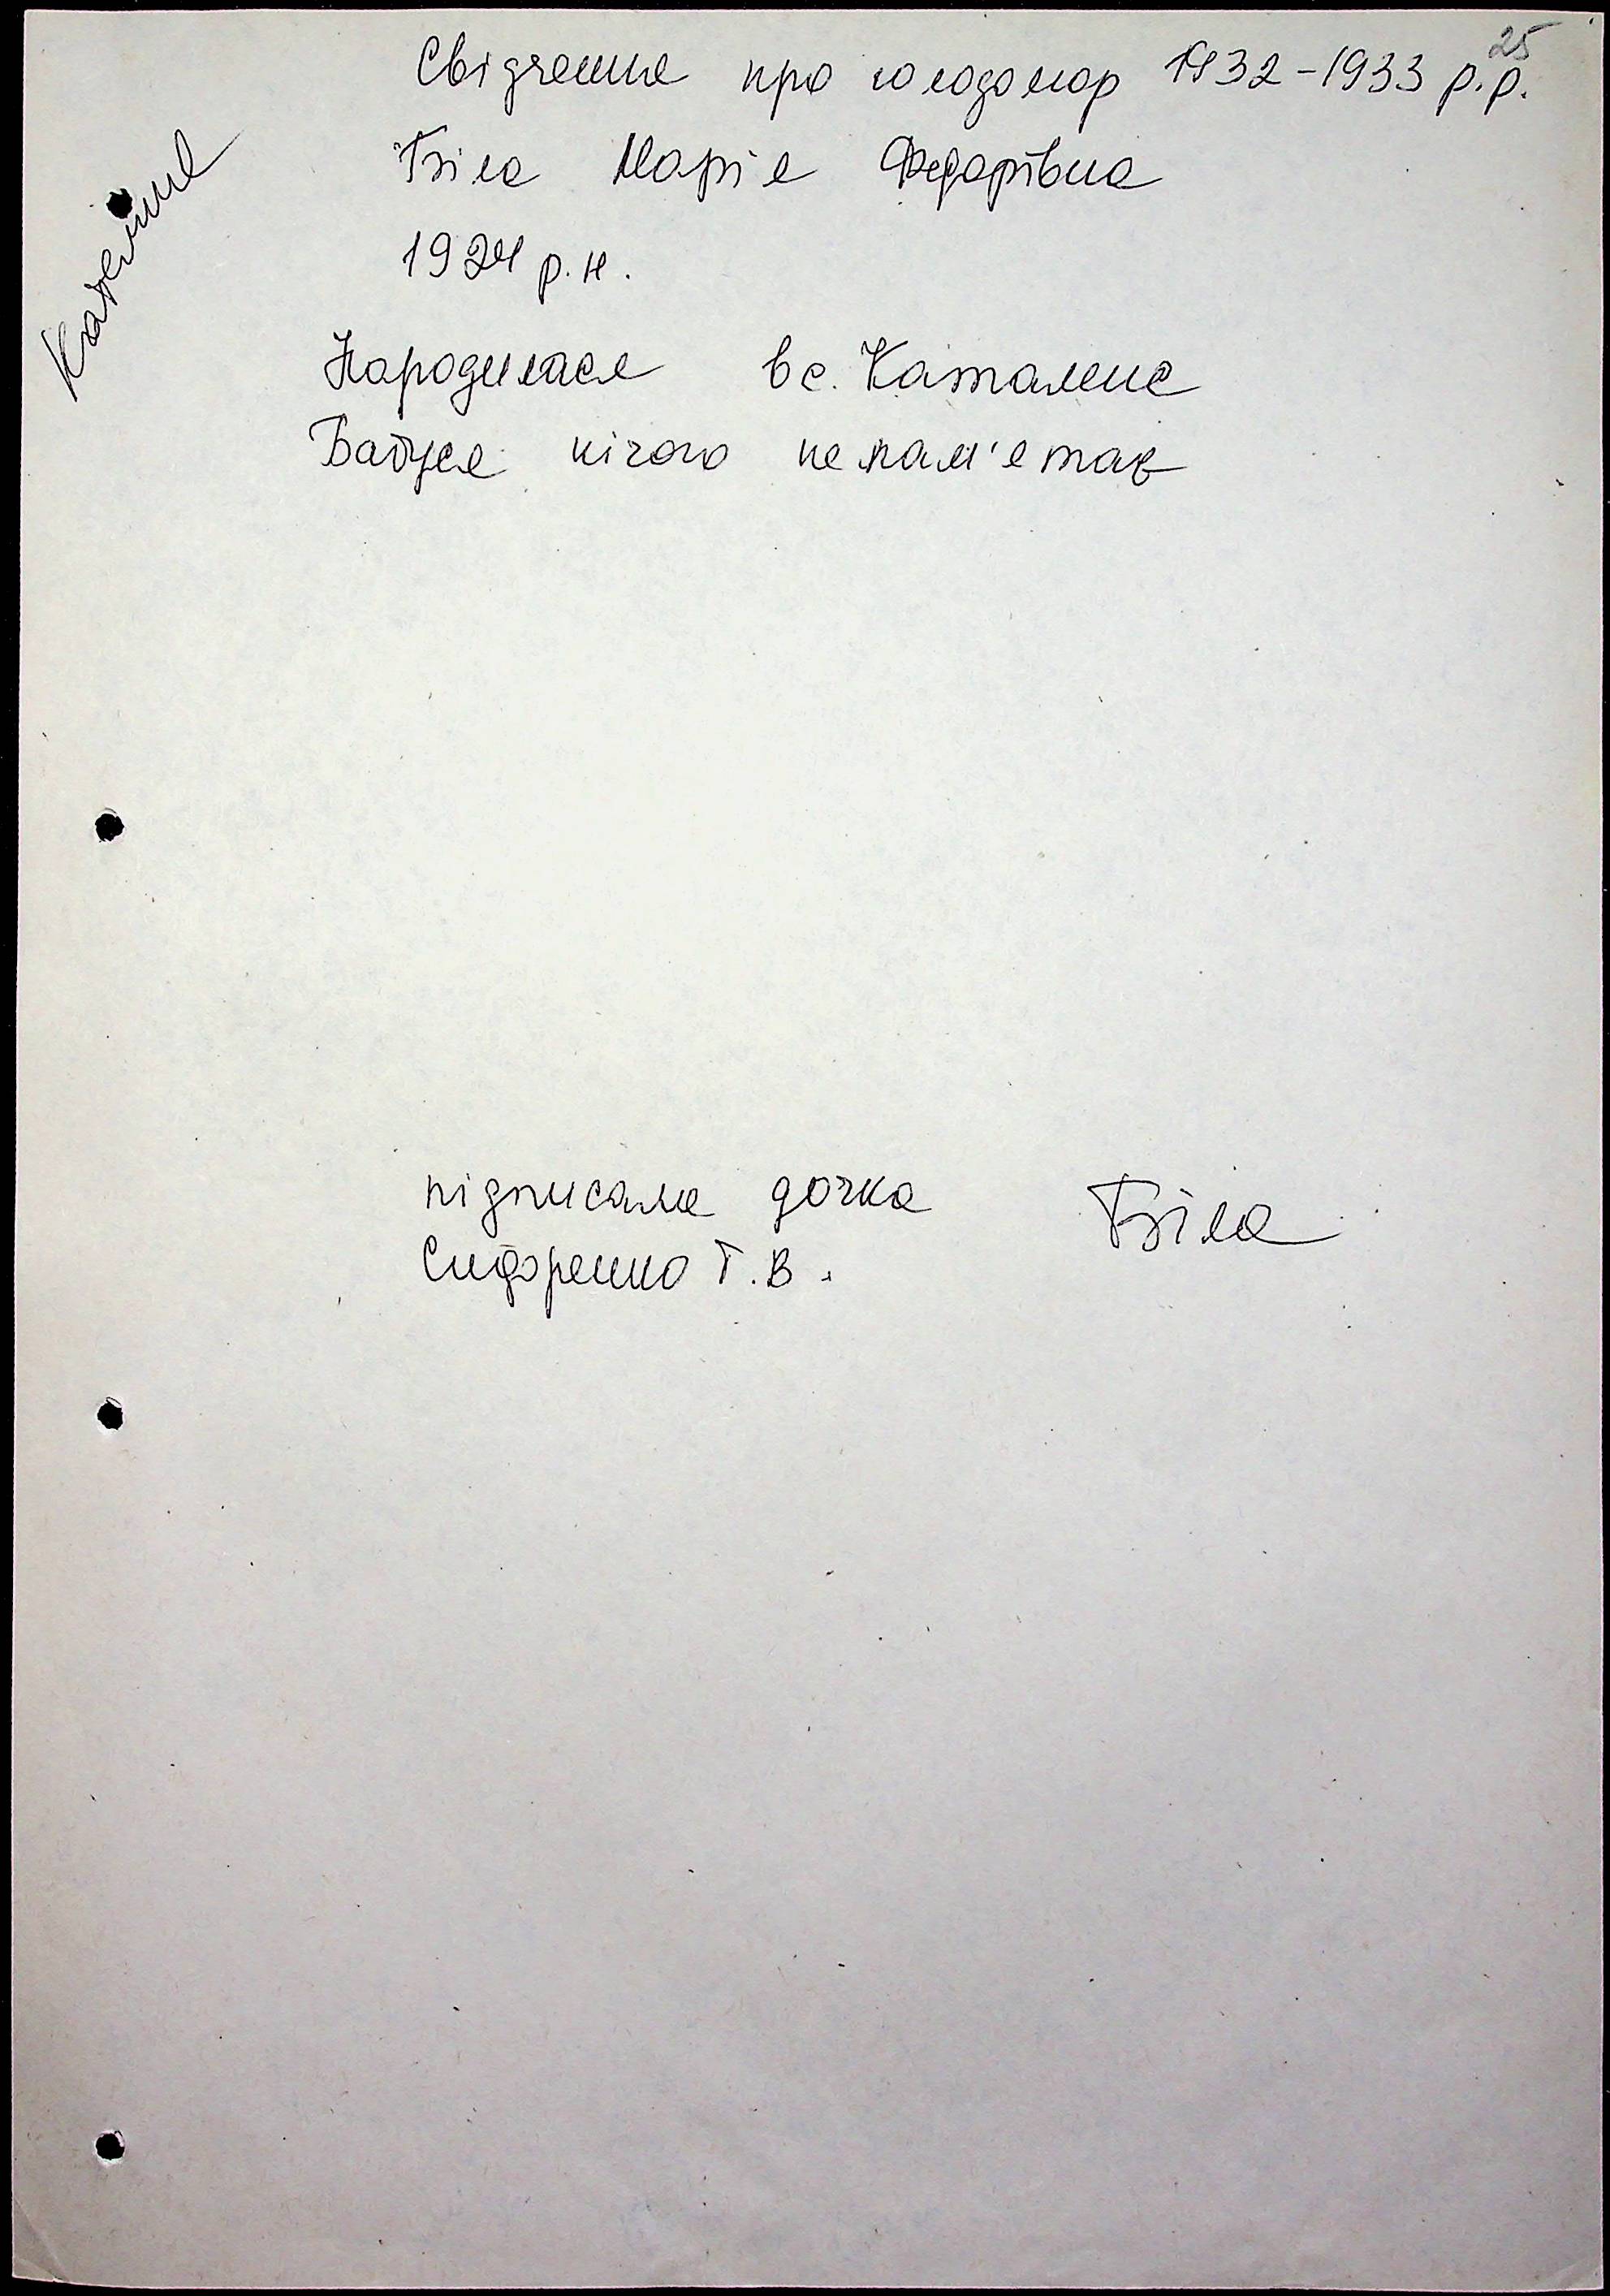 25
Свідчення про голодомор 1932-1933 р.р.
Біла Марія Федорівна
1924 р.н.
Народилася в с.
Бабуся нічого не пам'ятає
підписала дочка Біла
Сидоренко Т.В.